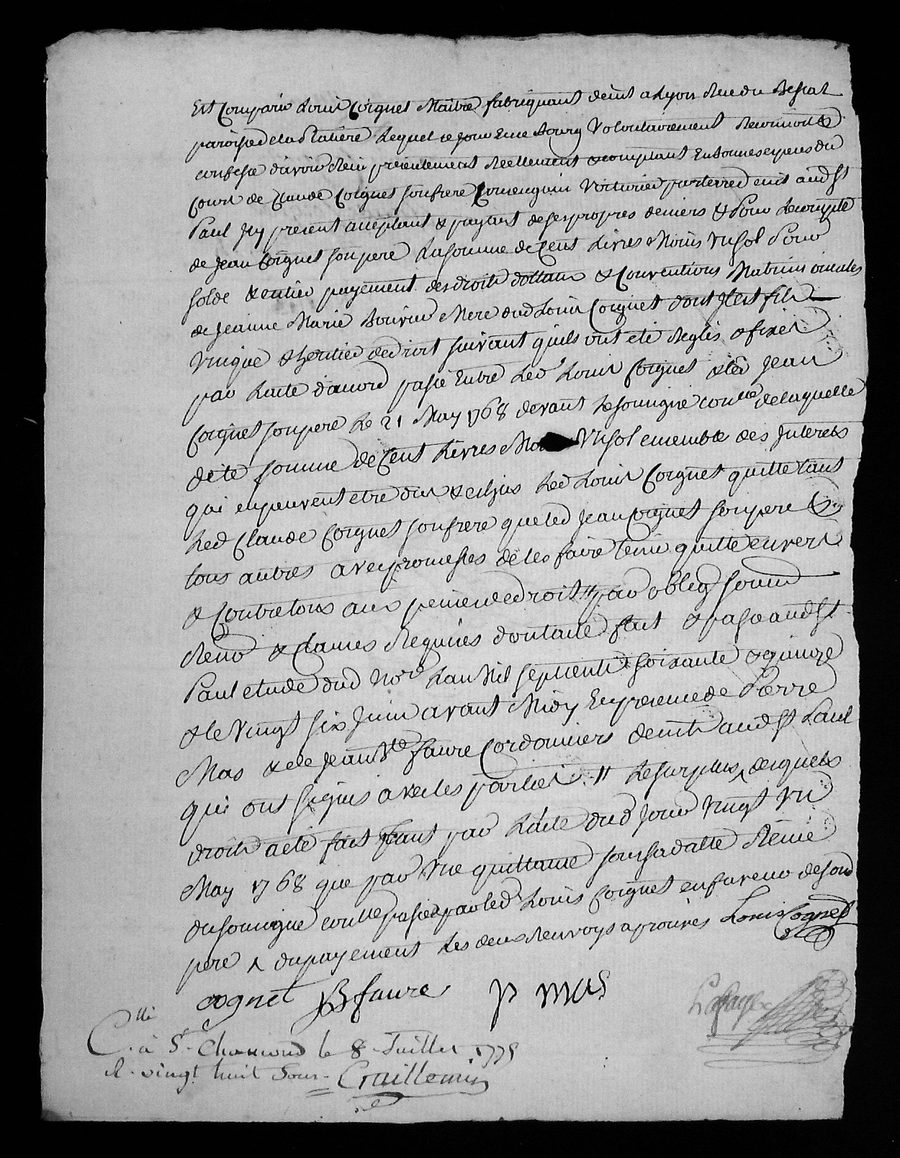 Est Comparu Louis Coignet Maitre fabriquant demt a Lyon Rue du Bessat
paroisse de la Platiere Lequel de son bourg Volontairement Reconnoit &
confesse d'avoir Reçu presentement Reellement & comptant En bonnes especes du
Cours de Claude Coignet son frere Voiturier par terre demt aud St
Paul Jcy present acceptant & payant de ses propres deniers & Pour Le compte
de Jean Coignet son pere La somme de Cent Livres Moins Un sol Pour
solde & entier payement des droits & Conventions Matrimoniales
de Jeanne Marie Bouvier Mere dud Louis Coignet dont Jl est fils
Unique & heritier de droit suivant quils ont été Reglés & fixés
par Lacte d'accord passé Entre Led Louis Coignet & led Jean
Coignet son pere Le 21 May 1768 devant Le soussigné de laquelle
dete somme de Cent Livres Moins Un sol ensemble des Interets
qui en peuvent etre dus Led Louis Coignet quitte tant
Led Claude Coignet son frere que led Jean Coignet son pere &
tous autres avec promesses de les faire tenir quitte envers
& Contre tous aux peines de droit // par oblig soumis
Reno & Clauses Requises dont acte fait & passé aud St
Paul etude dud Nore Lan Mil sept cent soixante & quinze
& le Vingt six Juin avant Midy En presence de Pierre
Mas & de Jean Bte Faure Cordonniers demts aud St Paul
qui ont signés avec les parties // Le surplus desquels
droits a été fait tant par Lacte dud jour Vingt Un
May 1768 que par Une quittance sous sa datte Reçue
du soussigné passée par led Louis Coignet en faveur de son
pere ^ du payement Les deux Renvoys aprouvés Louis Cognet
cognet JB faure p mas
C.lle à St Chamond le 8 Juillet 1775
R. vingt huit sous